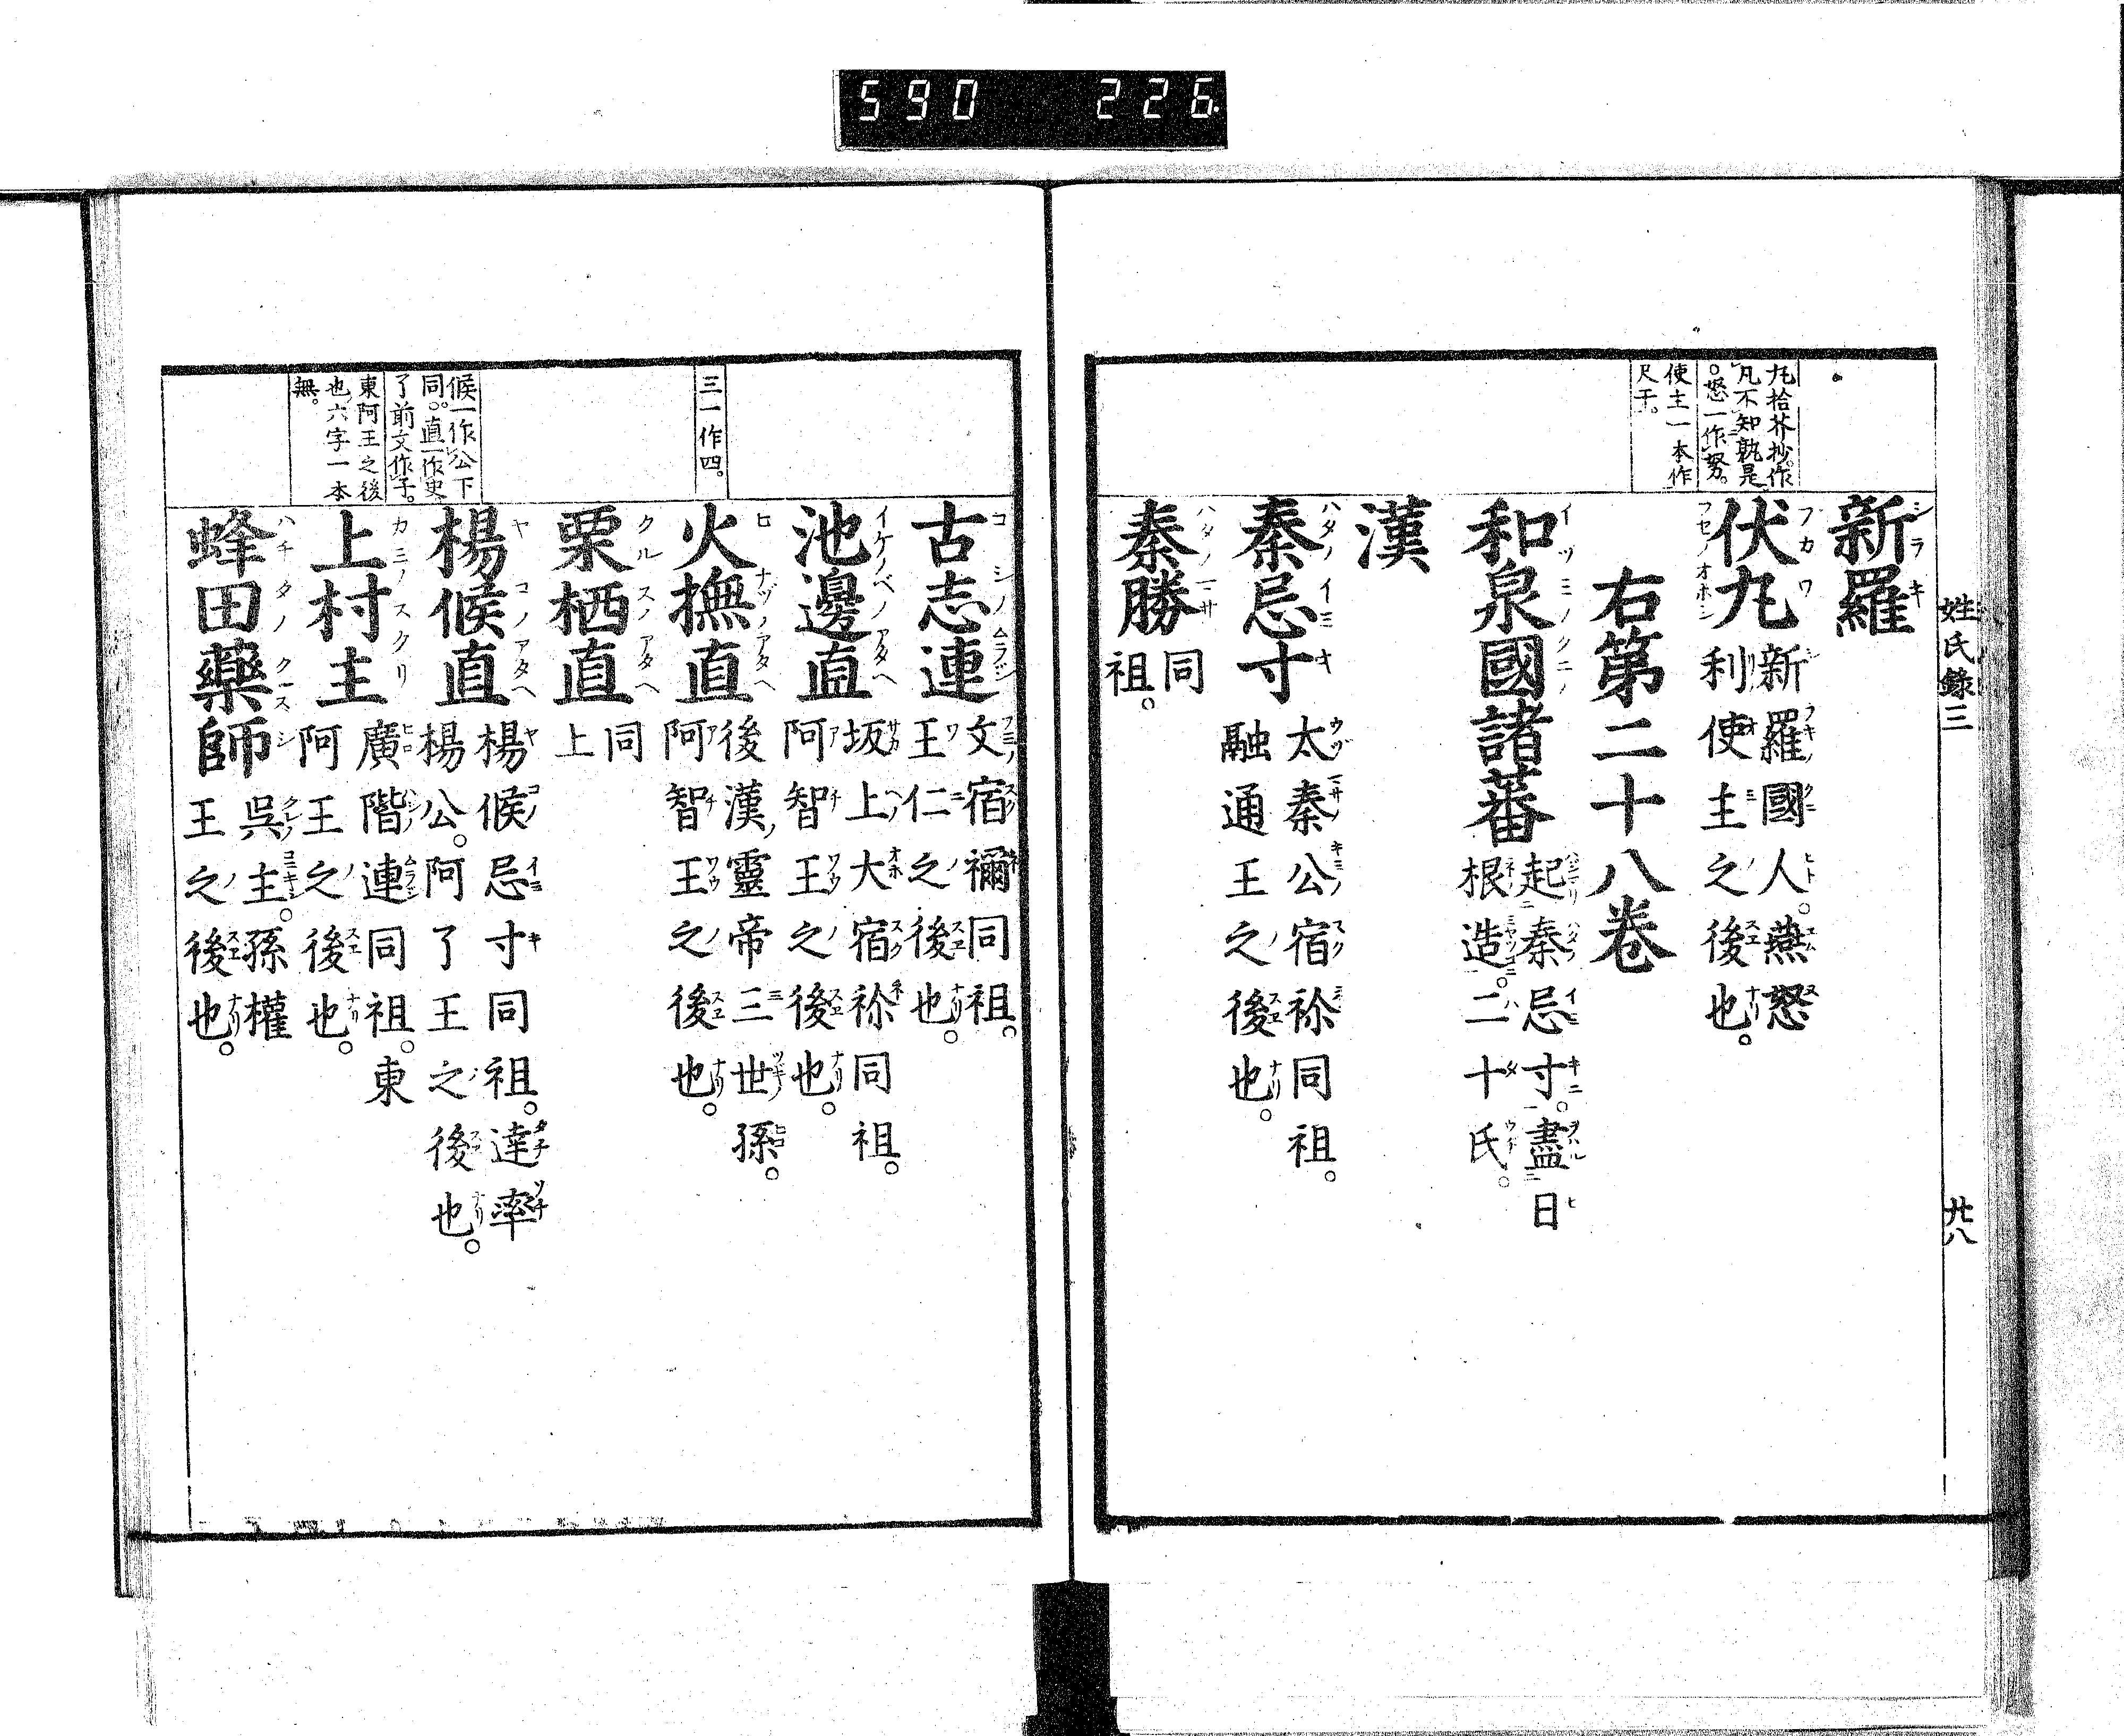 590 226
姓氏錄三
廿八
九拾芥抄作
凡不知孰是
。怒一作努。
使主一本作
尺干。
新羅
伏九
新羅國人。燕怒
利使主之後也。
右第二十八卷
和泉國諸蕃
起秦忌寸。盡日
根造。二十氏。
漢
秦忌寸
太秦公宿祢同祖。
融通王之後也。
秦勝
同
祖。
三一作四。
候一作公下
同。直一作史
了前文作子。
東阿王之後
也六字一本
無。
古志連
文宿禰同祖。
王仁之後也。
池邊直
坂上大宿祢同祖。
阿智王之後也。
火撫直
後漢靈帝三世孫。
阿智王之後也。
栗栖直
同
上
楊候直
楊候忌寸同祖。達率
楊公。阿了王之後也。
上村主
廣階連同祖。東
阿王之後也。
蜂田藥師
呉主。孫權
王之後也。